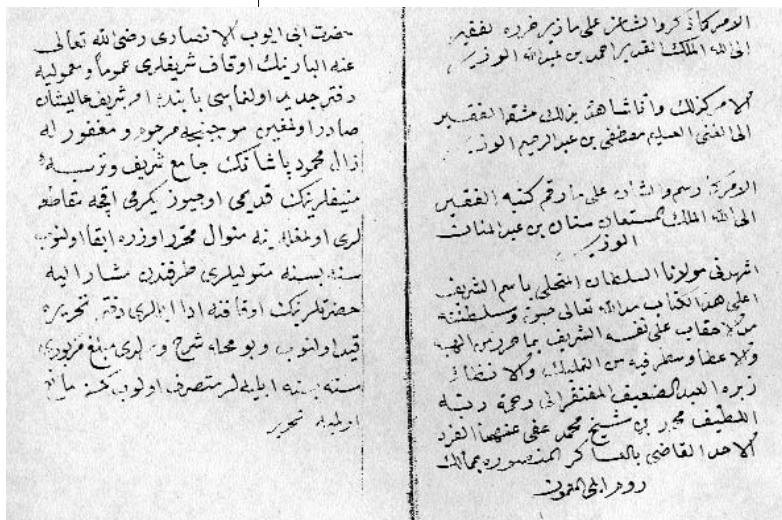 الامر كما ذكر والشان على ما زبر حرره الفقير
الى الله الملك القدير احمد بن عبدالله الوزير
الامر كذلك وانا شاهد بذلك نمقه الفقير
الى الغنى العليم مصطفى بن عبدالرحيم الوزير
الامر كما رسم والشان على ما رقم كتبه الفقير
الى الله الملك المستعان سنان بن عبدالمنان
الوزير
اشهدنى مولانا السلطان المحلى باسم الشريف
اعلى هذا الكتاب مد الله تعالى حيوته وسلطنته
مد الاحقاب على نفسه الشريف بما حرر من الهبه
والاعطا وسطر فيه من التمليك والامضا
زبره العبد الضعيف المفتقر الى رحمة ربه
اللطيف محمد بن شيخ محمد عفى عنهما الفرد
الاحد القاضى بالعساكر المنصوره بممالك
روم ايلى المعمور
حضرت ابى ايوب الانصارى رضى الله تعالى
عنه البارينك اوقاف شريفلرى عموما وشموليه
دفتر جديد اولنماسى بابنده امر شريف عاليشان
صادر اولمغين موجبنجه مرحوم و مغفور له
زال محمود پاشانك جامع شريف و تربه
منيفلرينك قديمى اوچيوز يكرمى اقچه مقاطعه
لرى اولمغله ينه منوال محرر اوزره ابقا اولنوب
سنه بسنه متوليلرى طرفندن مشار اليه
حضرتلرينك اوقافنه ادا ايلرى دفتر تحريره
قيد اولنوب وبو محله شرح ويرلدى مبلغ مزبورى
سنه بسنه متصرف اولوب كمسنه مانع
اولميه تحرير